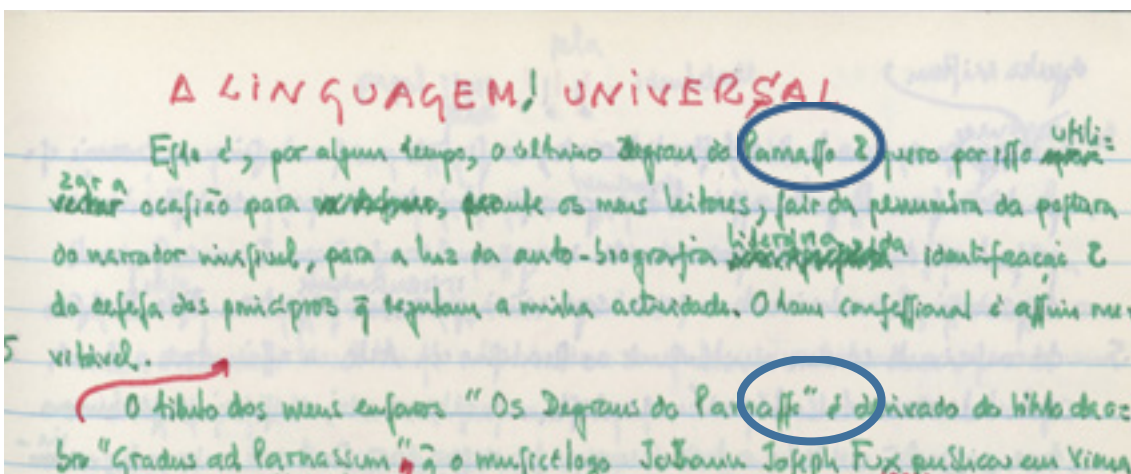 A LINGUAGEM! UNIVERSAL
Esta é, por algum tempo, o último Degrau do Parnasso e quero por isso utili-
zar a ocasião para perante os meus leitores, sair da penumbra da postura
do narrador invisível, para a luz da auto-biografia literária da identificação e
da defesa dos princípios q̃ regulam a minha actividade. O tom confessional é assim ine-
vitável.
O título dos meus ensaios "Os Degraus do Parnasso" é derivado do título da o-
bra "Gradus ad Parnassum" q̃ o musicólogo Johann Joseph Fux publicou em Viena
5